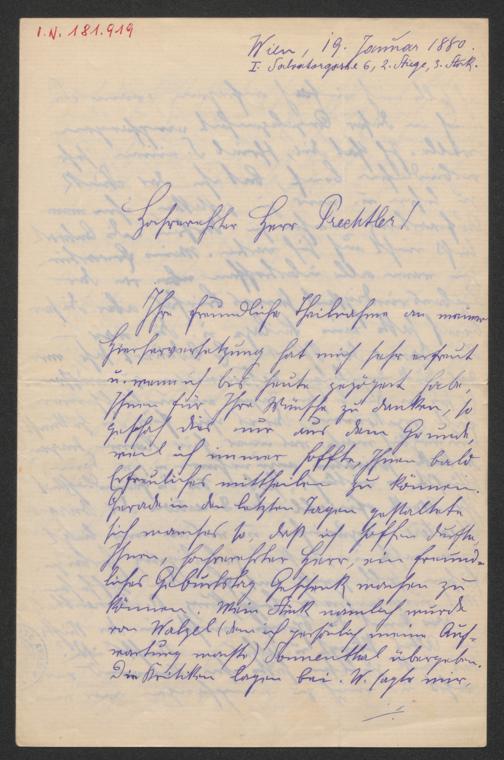 I.N. 181.919
Wien, 19. Januar 1880.
I. Salvatorgasse 6, 2. Stiege, 3. Stock.
Hochverehrter Herr Prechtler!
Ihre freundliche Theilnahme an meiner
Hierherversetzung hat mich sehr erfreut
u. wenn ich bis heute gezögert habe,
Ihnen für Ihre Wünsche zu danken, so
geschah dies nur aus dem Grunde,
weil ich immer hoffte, Ihnen bald
Erfreuliches mittheilen zu können.
Gerade in den letzten Tagen gestaltete
sich manches so, daß ich hoffen durfte,
Ihnen, hochverehrter Herr, ein freund-
liches Geburtstag Geschenk machen zu
können. Mein Stück nämlich wurde
von Walzel (dem ich persönlich meine Auf-
wartung machte) Sonnenthal übergeben.
Die Kritiken lagen bei. W. sagte mir,